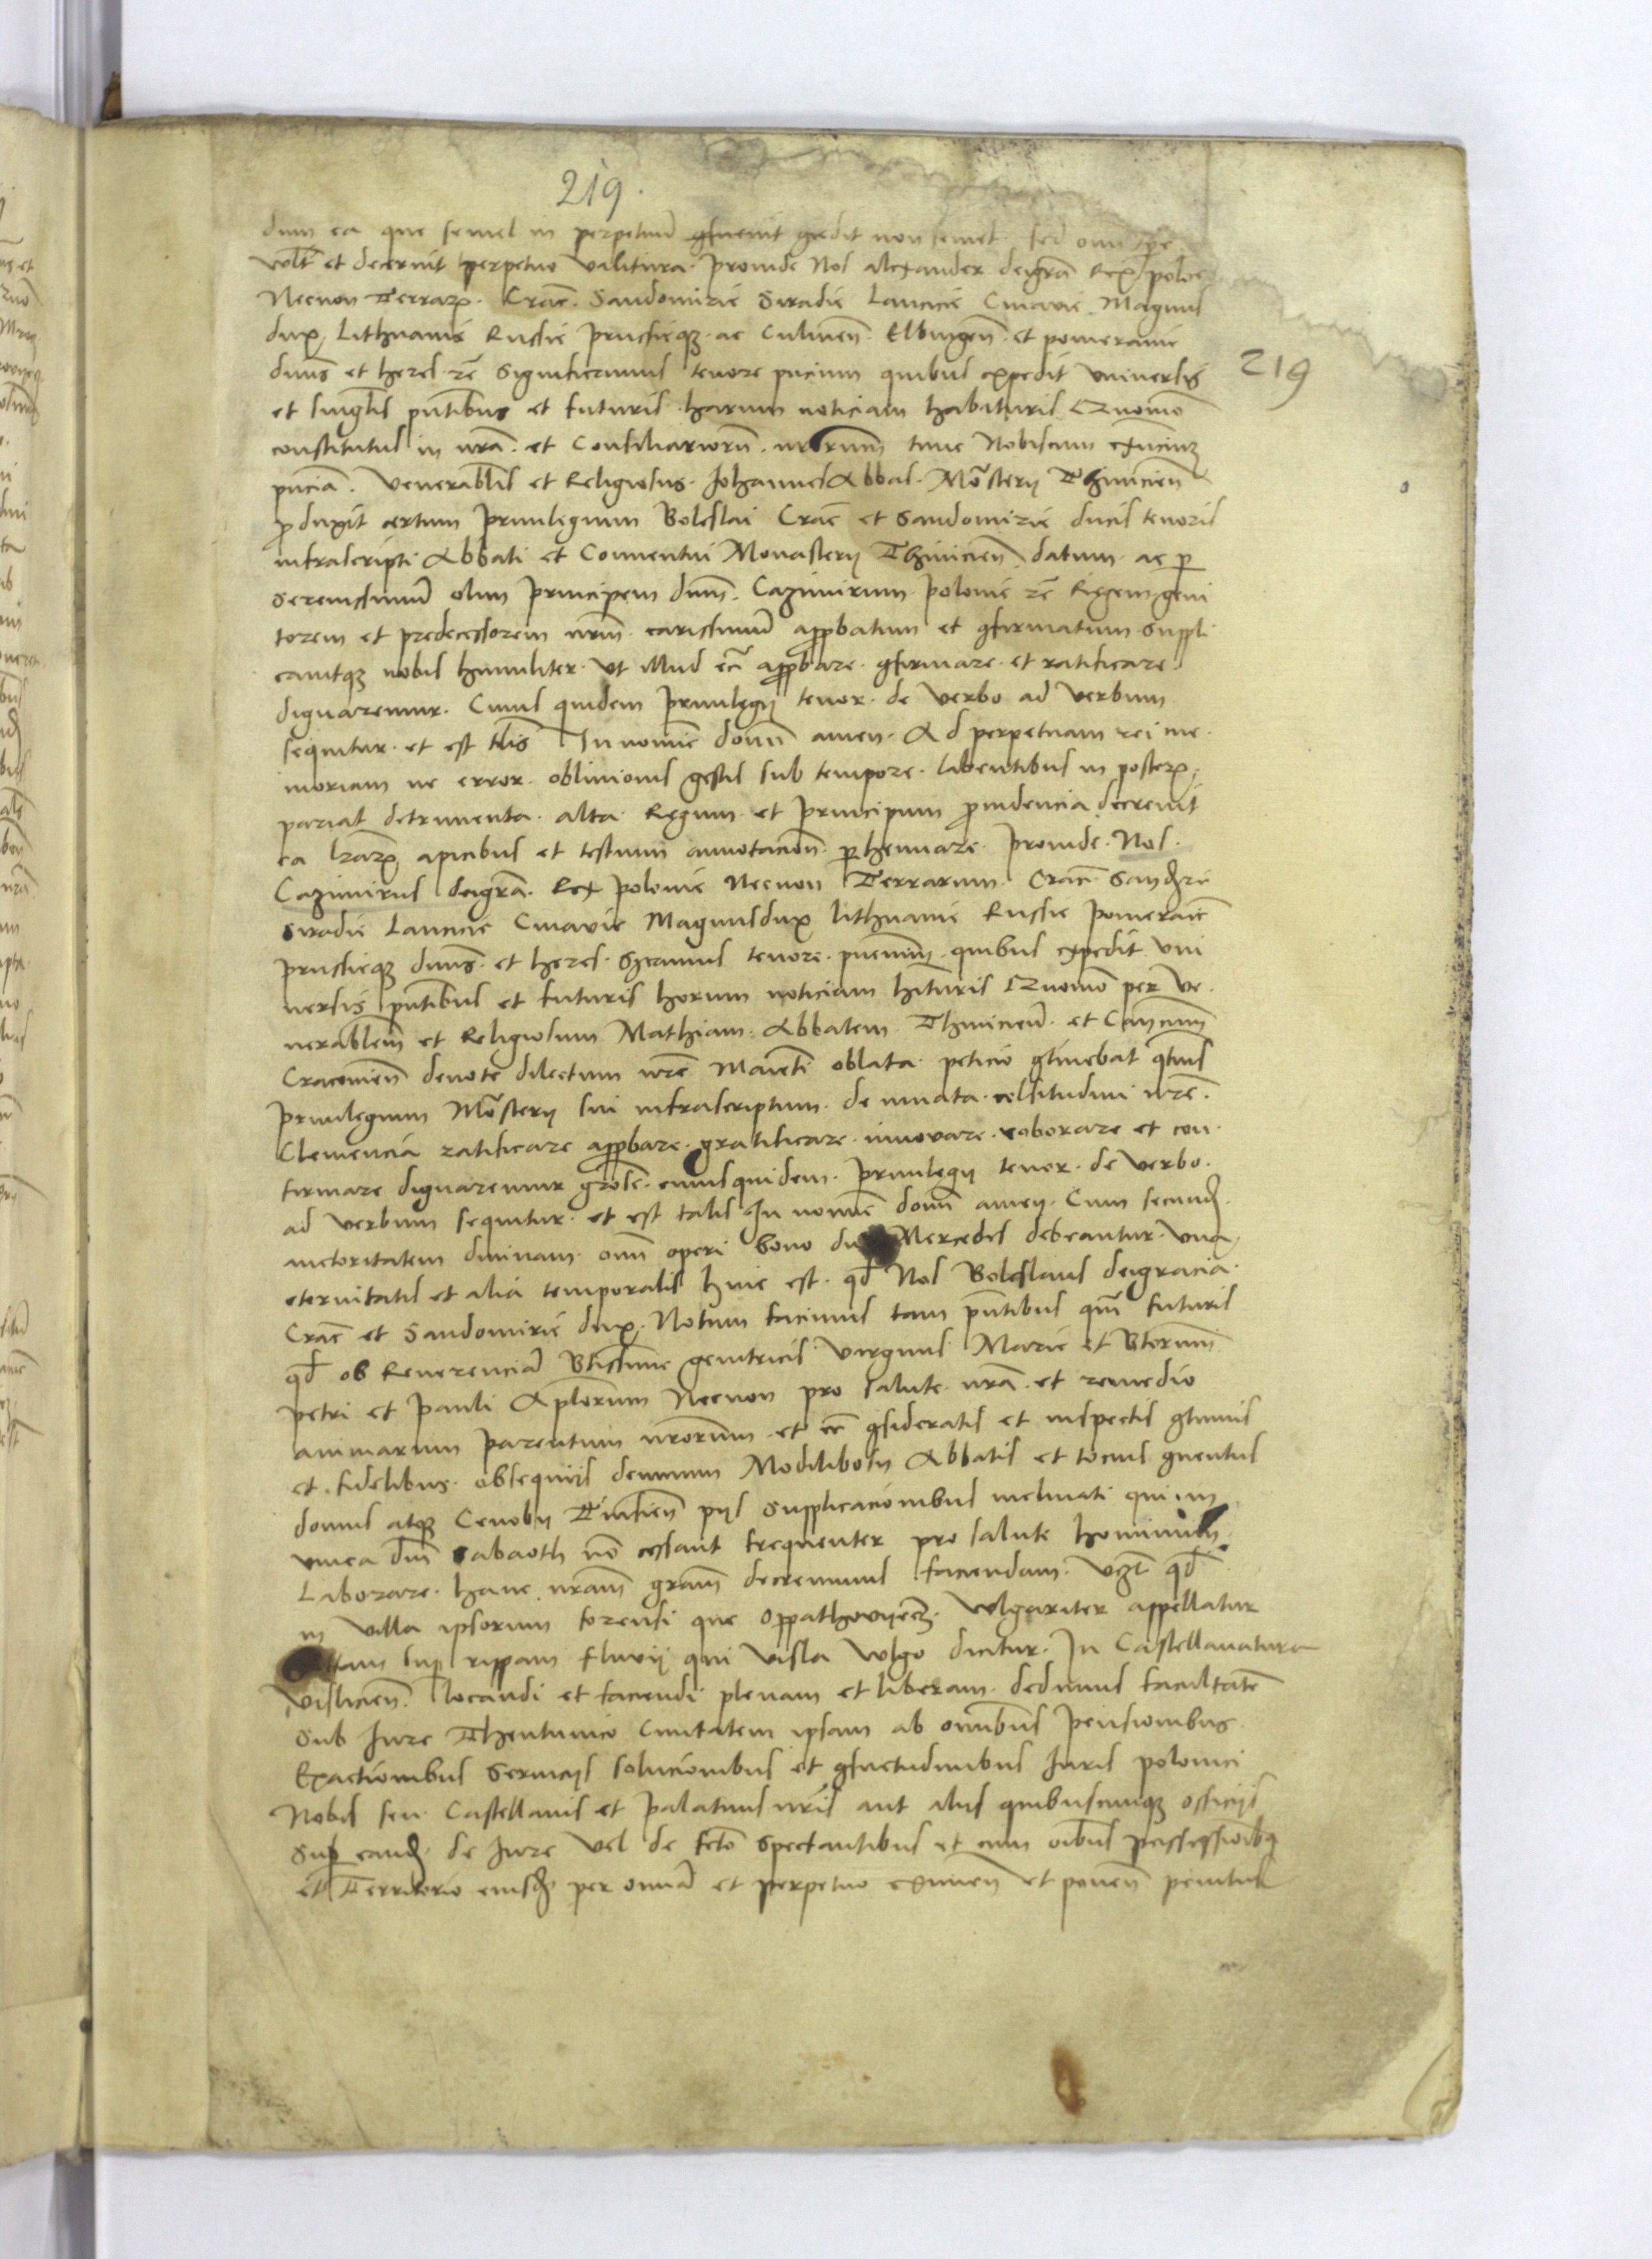 219.
dum ea que semel in perpetuū gfuenit gredit non temet. sed omi tpe
vult et decernit perpetuo valitura. Proinde Nos alexander deigrā Rex polōe
Necnon Terrarꝝ. Crac̄. Sandomirie Siradie Lancicie Cuiavie Magnus
dux Lithuanie Russie Prussieqꝫ. ac Culmen̄. Elbingen̄. et pomeranie
dn̄s et heres rc̄ Significamus tenore pn̄cium quibus expedit vniuersis
et singl̄is pn̄tibus et futuris harum noticiam habituris Quomō
constitutus in nr̄a. et Consiliariorū. nr̄orum tunc Nobiscum exn̄cium
pn̄cia. Venerabl̄is et Religiosus. Johannes Abbas. Mōsterij Thinicien̄
ꝓduxit certum Priuilegium Boleslai Crac̄ et Sandomirie ducis tenoris
infrascripti Abbati et Conuentui Monasterij Thinicien̄ datum. ac ꝑ
Serenissimū olim Principem dn̄m. Cazimirum Polonie rc̄ Regem geni
torem et predecessorem nr̄m. carissimū apꝓbatum et gfirmatum Suppli
cauitqꝫ nobis humiliter. vt illud ec̄ apꝓbare. gfirmare. et ratificare
dignaremur. Cuius quidem Priuilegij tenor. de verbo ad verbum
sequitur. et est tl̄is In nomie domi amen. Ad perpetuam rei me
moriam ne error. obliuionis gestis sub tempore. labentibus in posterꝝ
pariat detrimenta. alta Regum. et Principum ꝓuidencia decreuit
ea lr̄arꝝ apicibus et testium annotacion̄ ꝑhennare. Proinde. Nos.
Cazimirus deigrā. Rex Polonie Necnon Terrarum. Crac̄ Sandrie
Siradie Lancicie Cuiavie Magnusdux Lithuanie Russie Pomeranie
Prussieqꝫ dn̄s. et heres. Sgcamus tenore. pn̄cium. quibus expedit vni
uersis pn̄tibus et futuris horum noticiam hituris Quomō per ve
nerabl̄em et Religiosum Mathiam. Abbatem Thinicien̄. et Cancium
Cracouien̄ deuote dilectum nr̄e Maienti oblata. peticio gtinebat qtn̄us
priuilegium Mōsterij sui infrascriptum. de innata. celsitudini nr̄e.
Clemencia ratificare apꝓbare. gratificare. innouare. roborare et con
firmare dignaremur grōse. cuiusquidem. Priuilegij tenor. de verbo.
ad verbum sequitur. et est talis In nomie domi amen. Cum secund
auctoritatem diuinam. omi operi bono due Mercedes debeantur. Vna
eternitatis et alia temporalis hinc est. qd Nos Boleslaus deigracia
Crac̄ et Sandomirie dux. Notum facimus tam pn̄tibus qm̄ futuris
qd ob Reuerenciā Btissime genitricis virginis Marie et Btorum
Petri et Pauli Aplorum Necnon pro salute. nr̄a. et remedio
animarum parentum nr̄orum et ec̄ gsideratis et inspectis gtinuis
et. fidelibus. obsequiis demum Modilibosy Abbatis et tocius guentus
domus atqꝫ Cenobij Tinicien̄ pijs Supplicacionibus inclinati qui in
vinea dm̄ sabaoth nō cessant frequenter pro salute hominum.
Laborare. hanc nr̄am grām decreuimus faciendam. vzt qd
in villa ipsorum forensi que Oppathovyecz. Vulgariter appellatur
sitam sup rippam fluvij qui visla vulgo dicitur. In Castellanatura
vislicien̄. locandi et faciendi plenam et liberam. dedimus facultatē
Sub Jure Theutunico Ciuitatem ipsam ab om̄ibus pensionibus
Exactionibus Seruicijs solucionibus et gsuetudinibus Juris polonici
Nobis seu Castellanis et Palatinis nr̄is aut alijs quibuscumqꝫ officijs
Sup eand. de Jure vel de fcto Spectantibus et cum oibus possessioibꝫ
et Territorio eiusd per omia et perpetuo eximen̄ et ponen̄ penitus
219